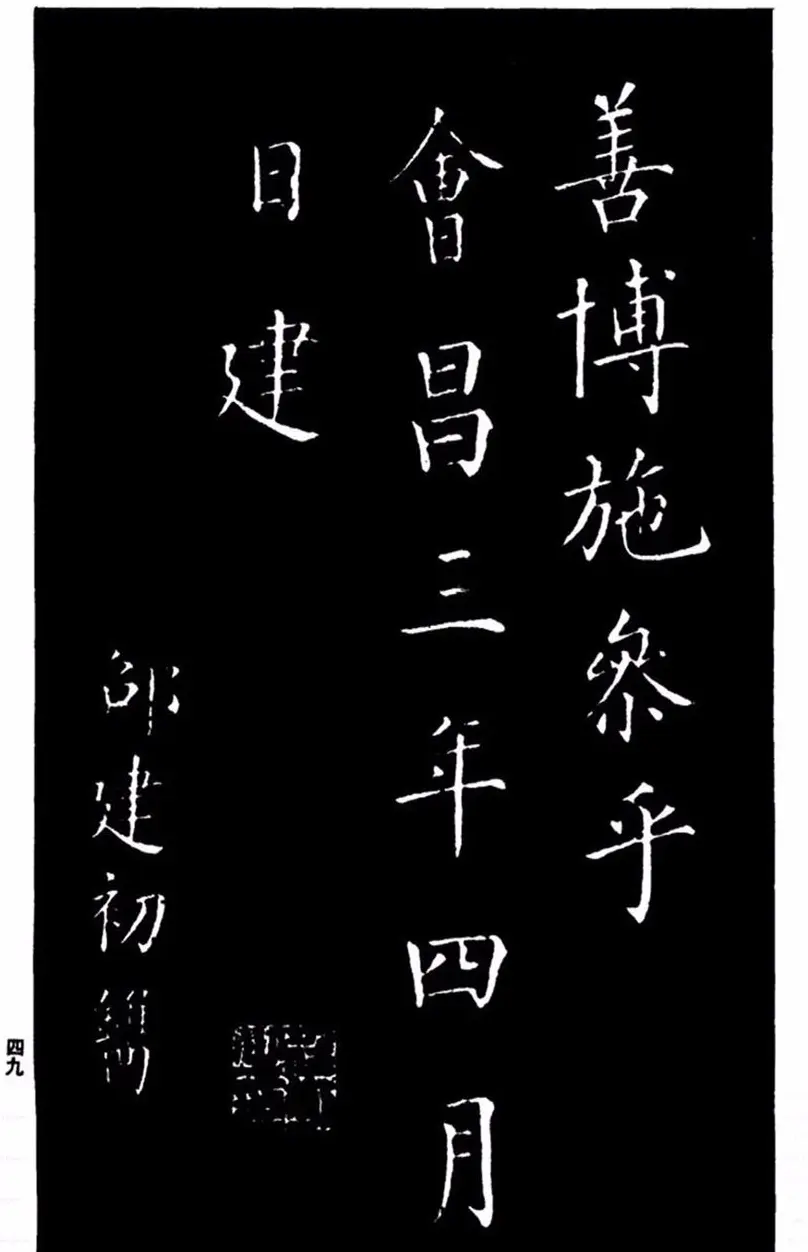 善博施叅乎
會昌三年四月
日建
邵建初鐫
四九